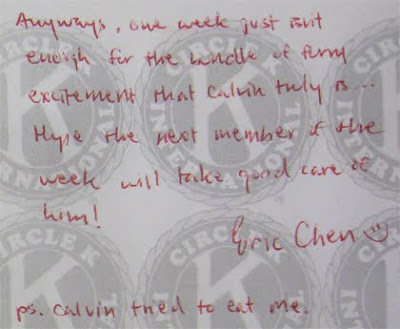 Anyways, one week just isn't
enough for the bundle of furry
excitement that Calvin truly is...
Hype the next member of the
week will take good care of
him!
Eric Chen
ps. Calvin tried to eat me.
CIRCLE K
INTERNATIONAL